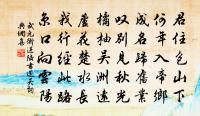 君住包山下
何年入帝鄉
成名歸舊業
叹別見秋光
橘柚吳洲遠
蘆花楚水長
我行經此路
京口向雲陽
武元衡送陸書還吳詞
典網集